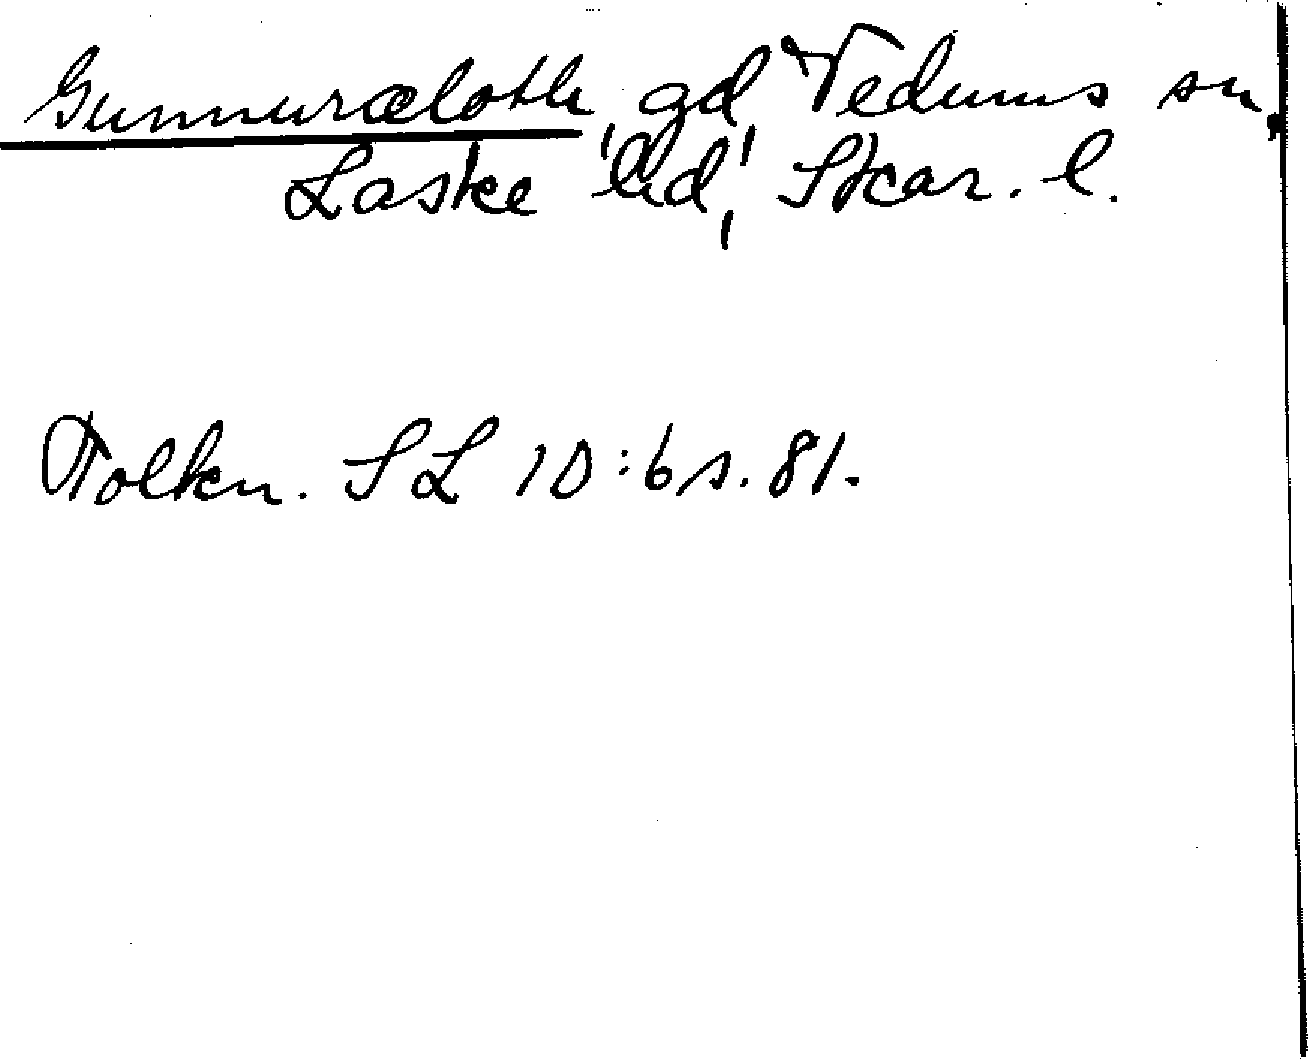 Gunnuræloth, gd, Vedums sn,
Laske hd, Skar. l.
Tolkn. SL 10:6 s. 81.